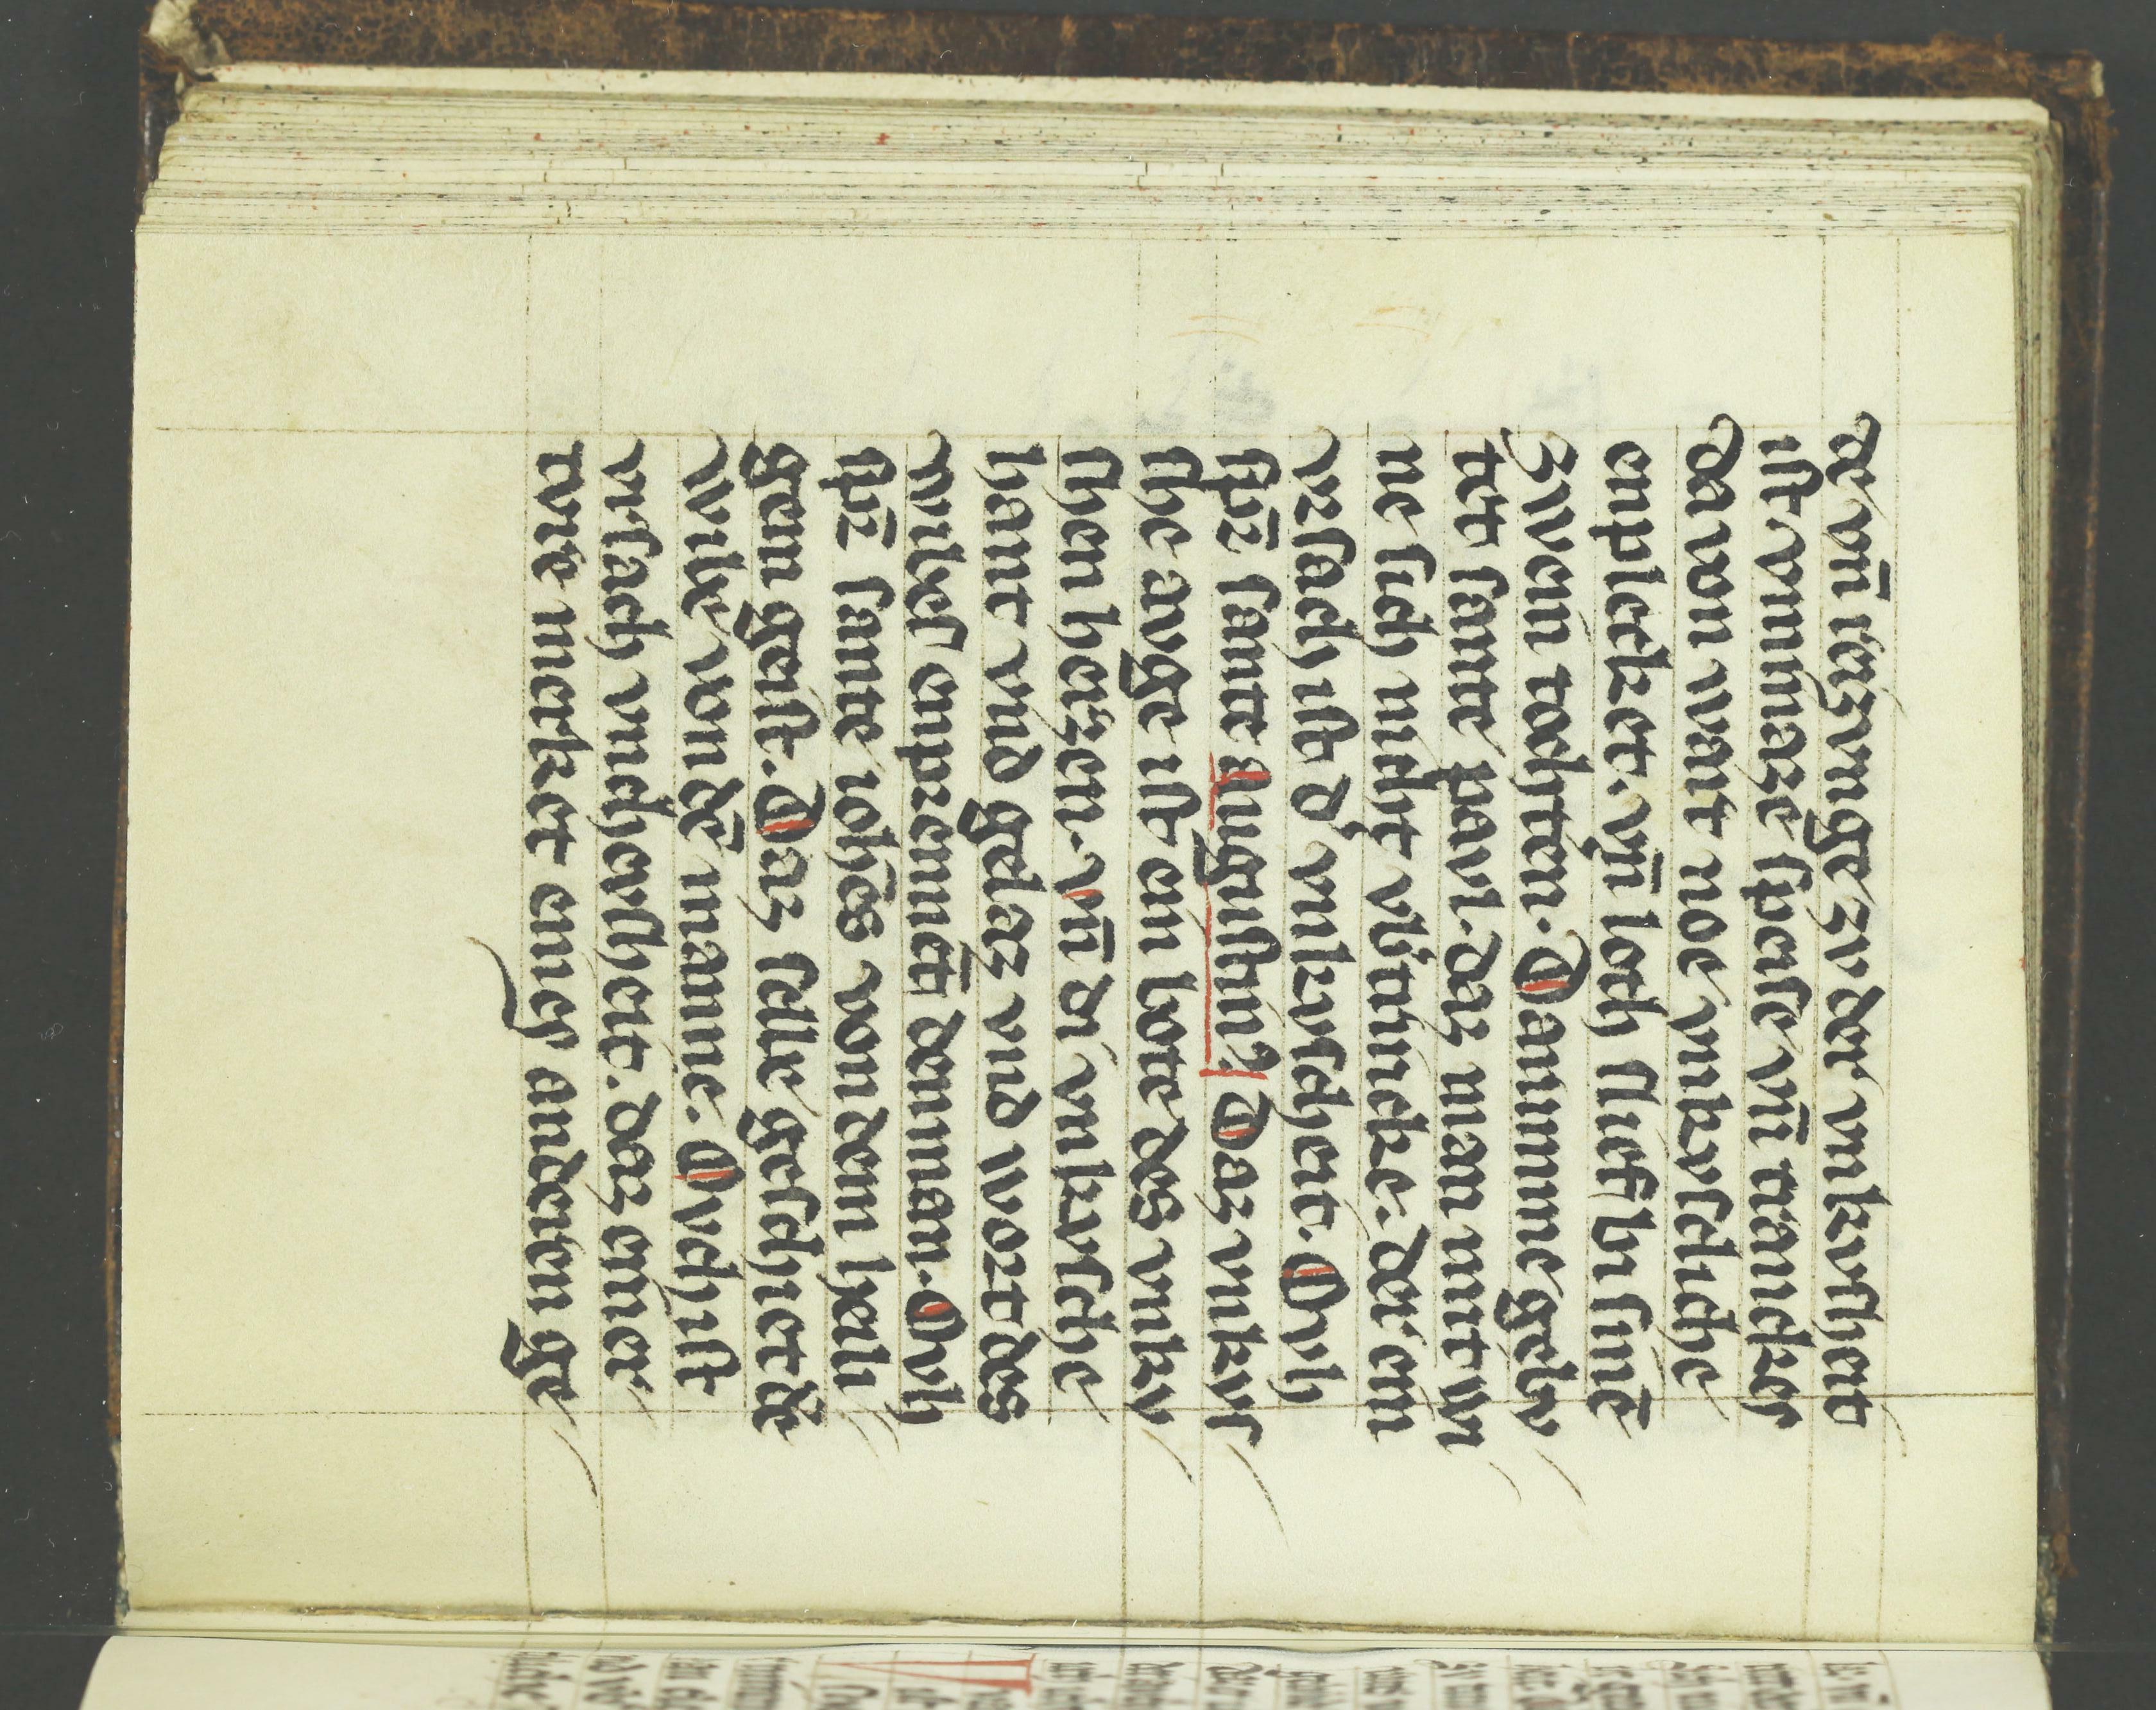 de vn̄ reizvnge zv der vnkvsheit
ist vnmaze speise vn̄ tranckes
da von wart noe vnkvschliche
enplecket. vn̄ loth slief bi sinē
zwein tochtern. Damme gebv
tet sante pavl. daz man mit wi
ne sich nicht v̓trincke. dar em
vrsach ist d̓ vnkvscheit. Ovh
sp̄r sante augustin9. Daz vnkvs
she avge ist ein bote des vnkv
shen herzen. vn̄ di vnkvsche
hant vnd gelaz vnd wort des
wibes enpremiet denman. Ovh
sp̄r sante iohēs von dem heili
gem geist. Daz selle geschiet dē
wibe von dē manne. Ovch ist
vrsach vnchevsheit. daz einer
twie merket eines anderen ge